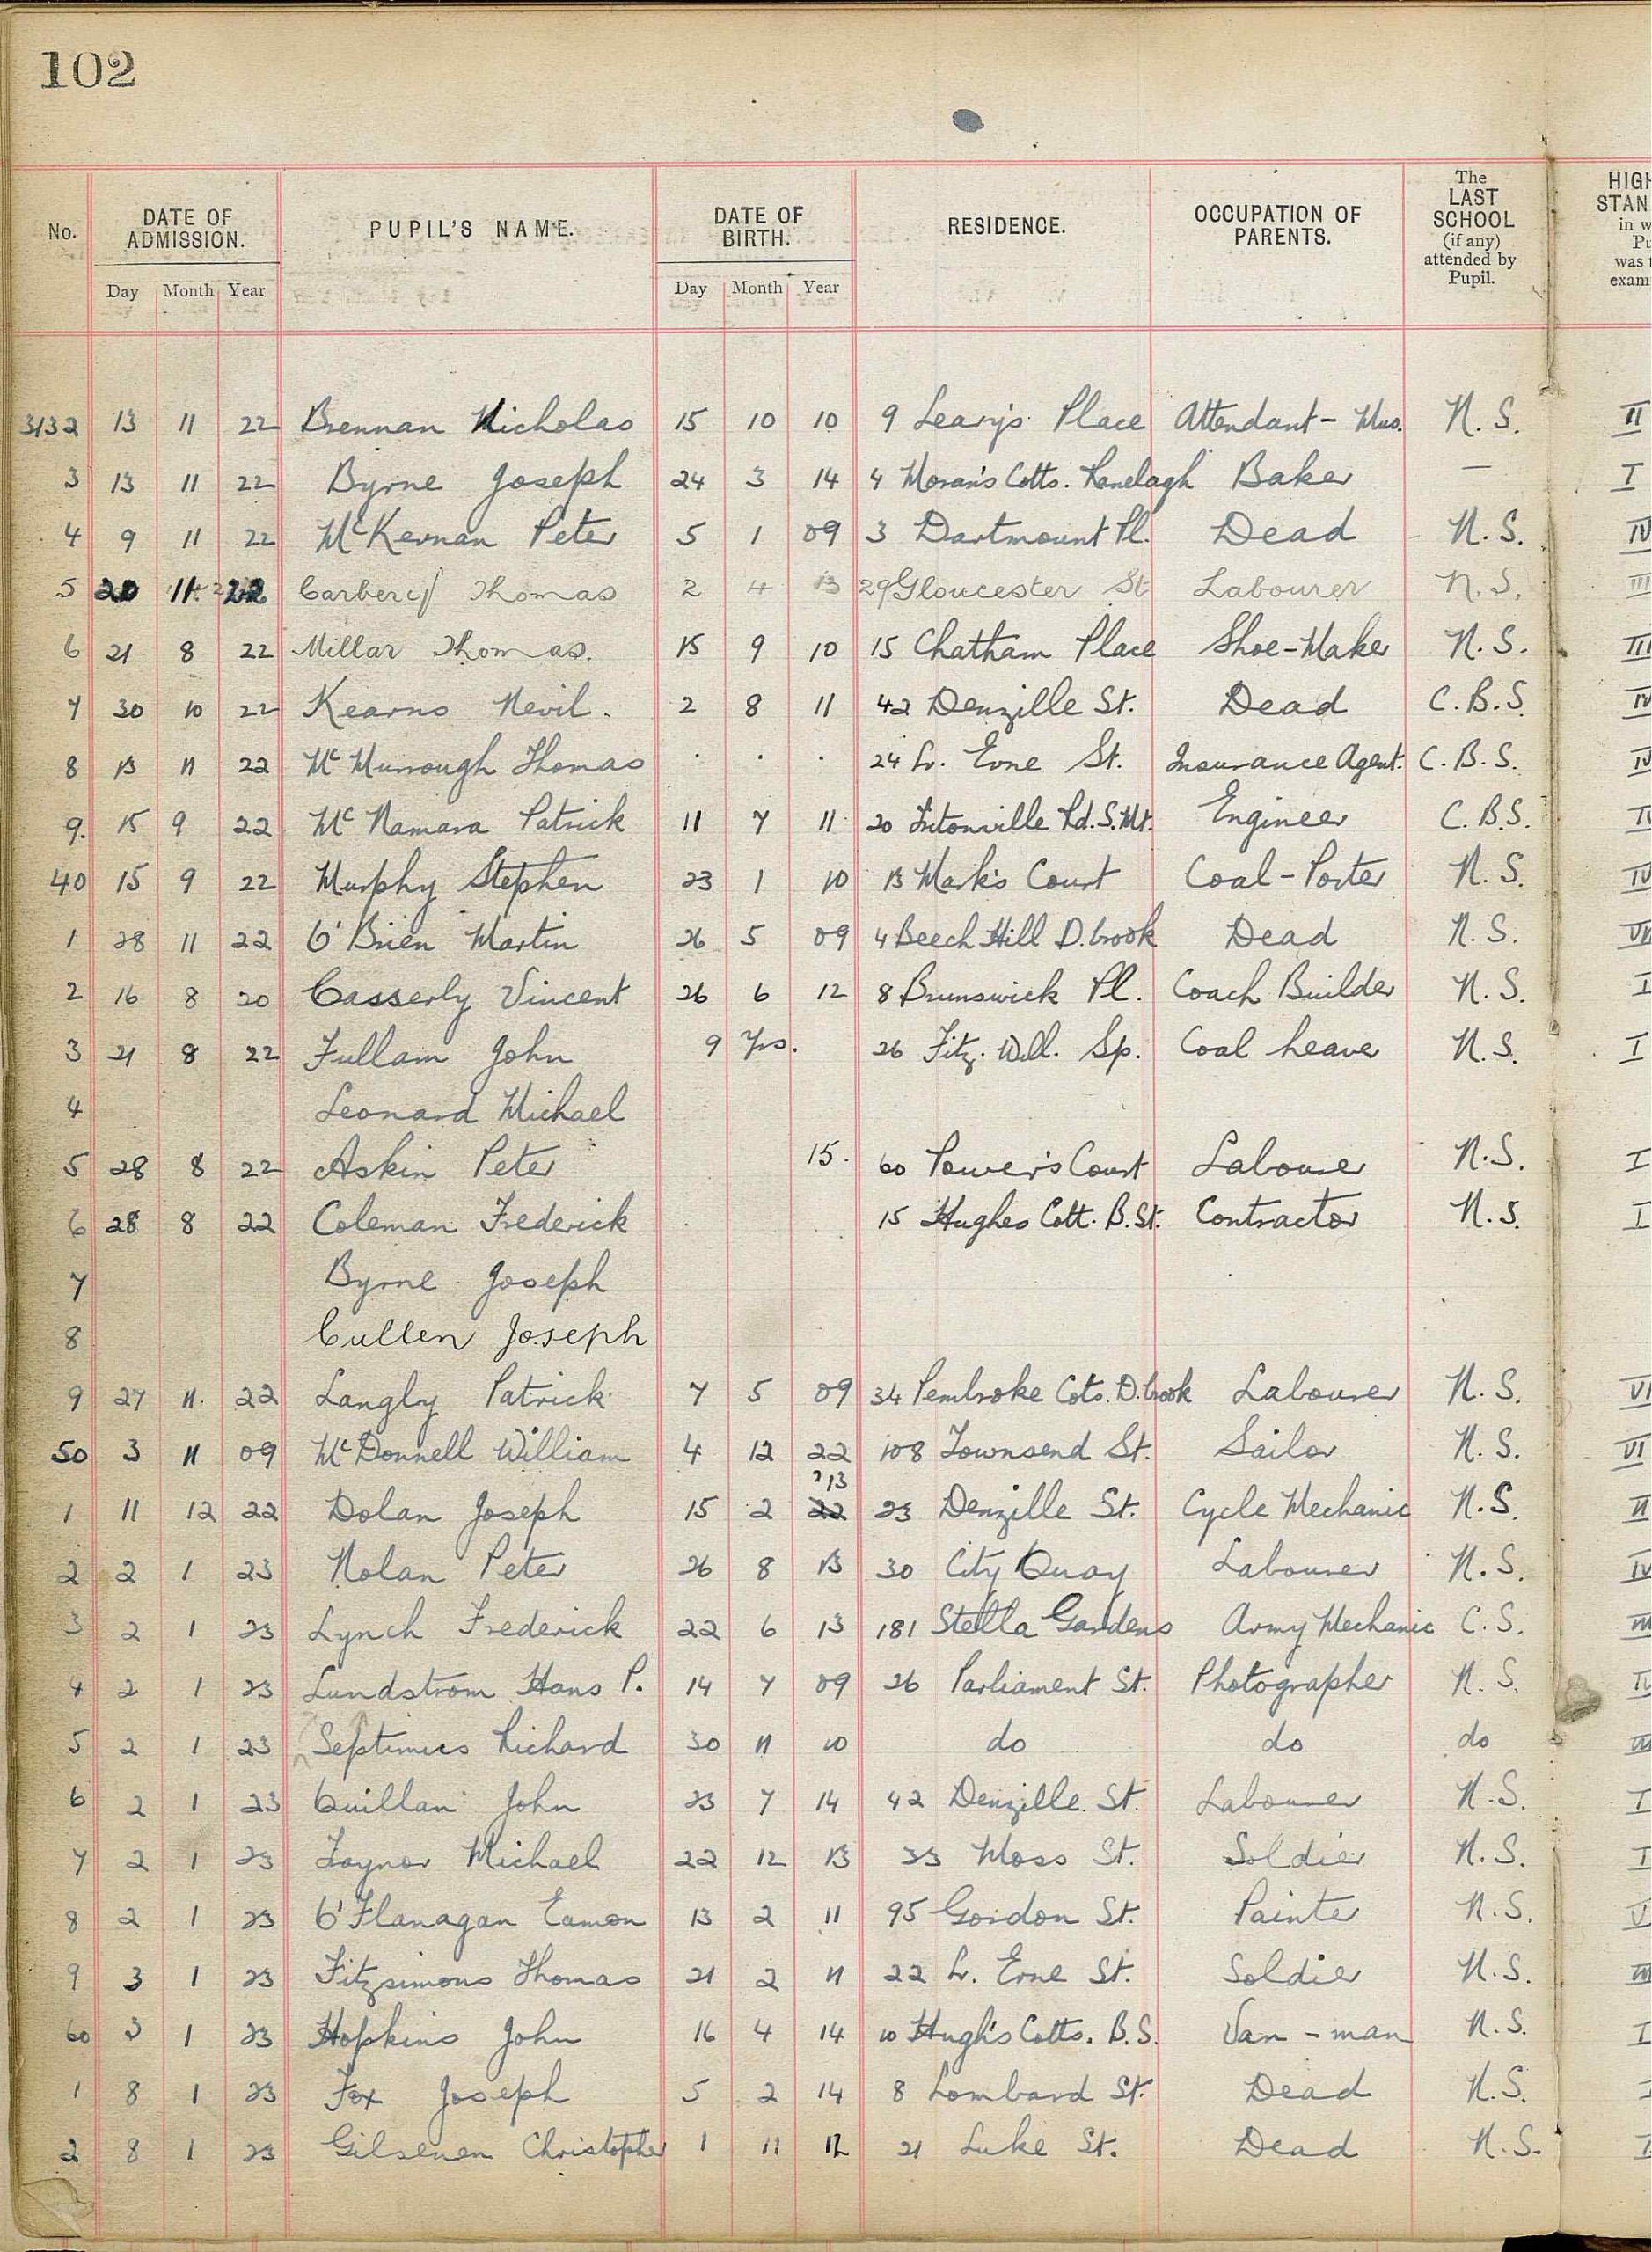 102
No. DATE OF ADMISSION. PUPIL'S NAME. DATE OF BIRTH. RESIDENCE. OCCUPATION OF PARENTS. The LAST SCHOOL (if any) attended by Pupil.
Day Month Year Day Month Year
3132 13 11 22 Brennan Nicholas 15 10 10 9 Leary's Place Attendant - Mus. N.S. II
3 13 11 22 Byrne Joseph 24 3 14 4 Moran's Cotts. Ranelagh Baker — I
4 9 11 22 McKernan Peter 5 1 09 3 Dartmount Pl. Dead N.S. IV
5 20 11 22 Carbery Thomas 2 4 13 29 Gloucester St Labourer N.S. III
6 21 8 22 Millar Thomas. 15 9 10 15 Chatham Place Shoe-Maker N.S. III
7 30 10 22 Kearns Nevil. 2 8 11 42 Denzille St. Dead C.B.S. IV
8 13 11 22 McMurrough Thomas . . . 24 Lr. Erne St. Insurance Agent. C.B.S. IV
9. 15 9 22 McNamara Patrick 11 7 11 20 Tritonville Rd. S.Mt. Engineer C.B.S.
40 15 9 22 Murphy Stephen 23 1 10 13 Mark's Court Coal-Porter N.S. IV
1 28 11 22 O'Brien Martin 26 5 09 4 Beech Hill D.brook Dead N.S.
2 16 8 20 Casserly Vincent 26 6 12 8 Brunswick Pl. Coach Builder N.S. I
3 21 8 22 Fullam John 9 Yrs. 26 Fitz. Will. Sp. Coal heaver N.S. I
4 Leonard Michael
5 28 8 22 Askin Peter 15. 60 Power's Court Labourer N.S. I
6 28 8 22 Coleman Frederick 15 Hughes Cott. B.St. Contractor N.S. I
7 Byrne Joseph
8 Cullen Joseph
9 27 11. 22 Langly Patrick 7 5 09 34 Pembroke Cots. D.brook Labourer N.S. VI
50 3 11 09 McDonnell William 4 12 22 108 Townsend St. Sailor N.S. VI
?13
1 11 12 22 Dolan Joseph 15 2 22 23 Denzille St. Cycle Mechanic N.S. II
2 2 1 23 Nolan Peter 26 8 13 30 City Quay Labourer N.S. IV
3 2 1 23 Lynch Frederick 22 6 13 181 Stella Gardens Army Mechanic C.S. III
4 2 1 23 Lundstrom Hans P. 14 7 09 26 Parliament St. Photographer N.S.
5 2 1 23 Septimus Richard 30 11 10 do do do
6 2 1 23 Cuillan John 23 7 14 42 Denzille St. Labourer N.S. I
7 2 1 23 Taynor Michael 22 12 13 33 Moss St. Soldier N.S. I
8 2 1 23 O'Flanagan Eamon 13 2 11 95 Gordon St. Painter N.S. V
9 3 1 23 Fitzsimons Thomas 21 2 11 22 Lr. Erne St. Soldier N.S. III
60 3 1 23 Hopkins John 16 4 14 10 Hugh's Cotts. B.S. Van-man N.S. I
1 8 1 23 Fox Joseph 5 2 14 8 Lombard St. Dead N.S.
2 8 1 23 Gilsenen Christopher 1 11 12 21 Luke St. Dead N.S. I